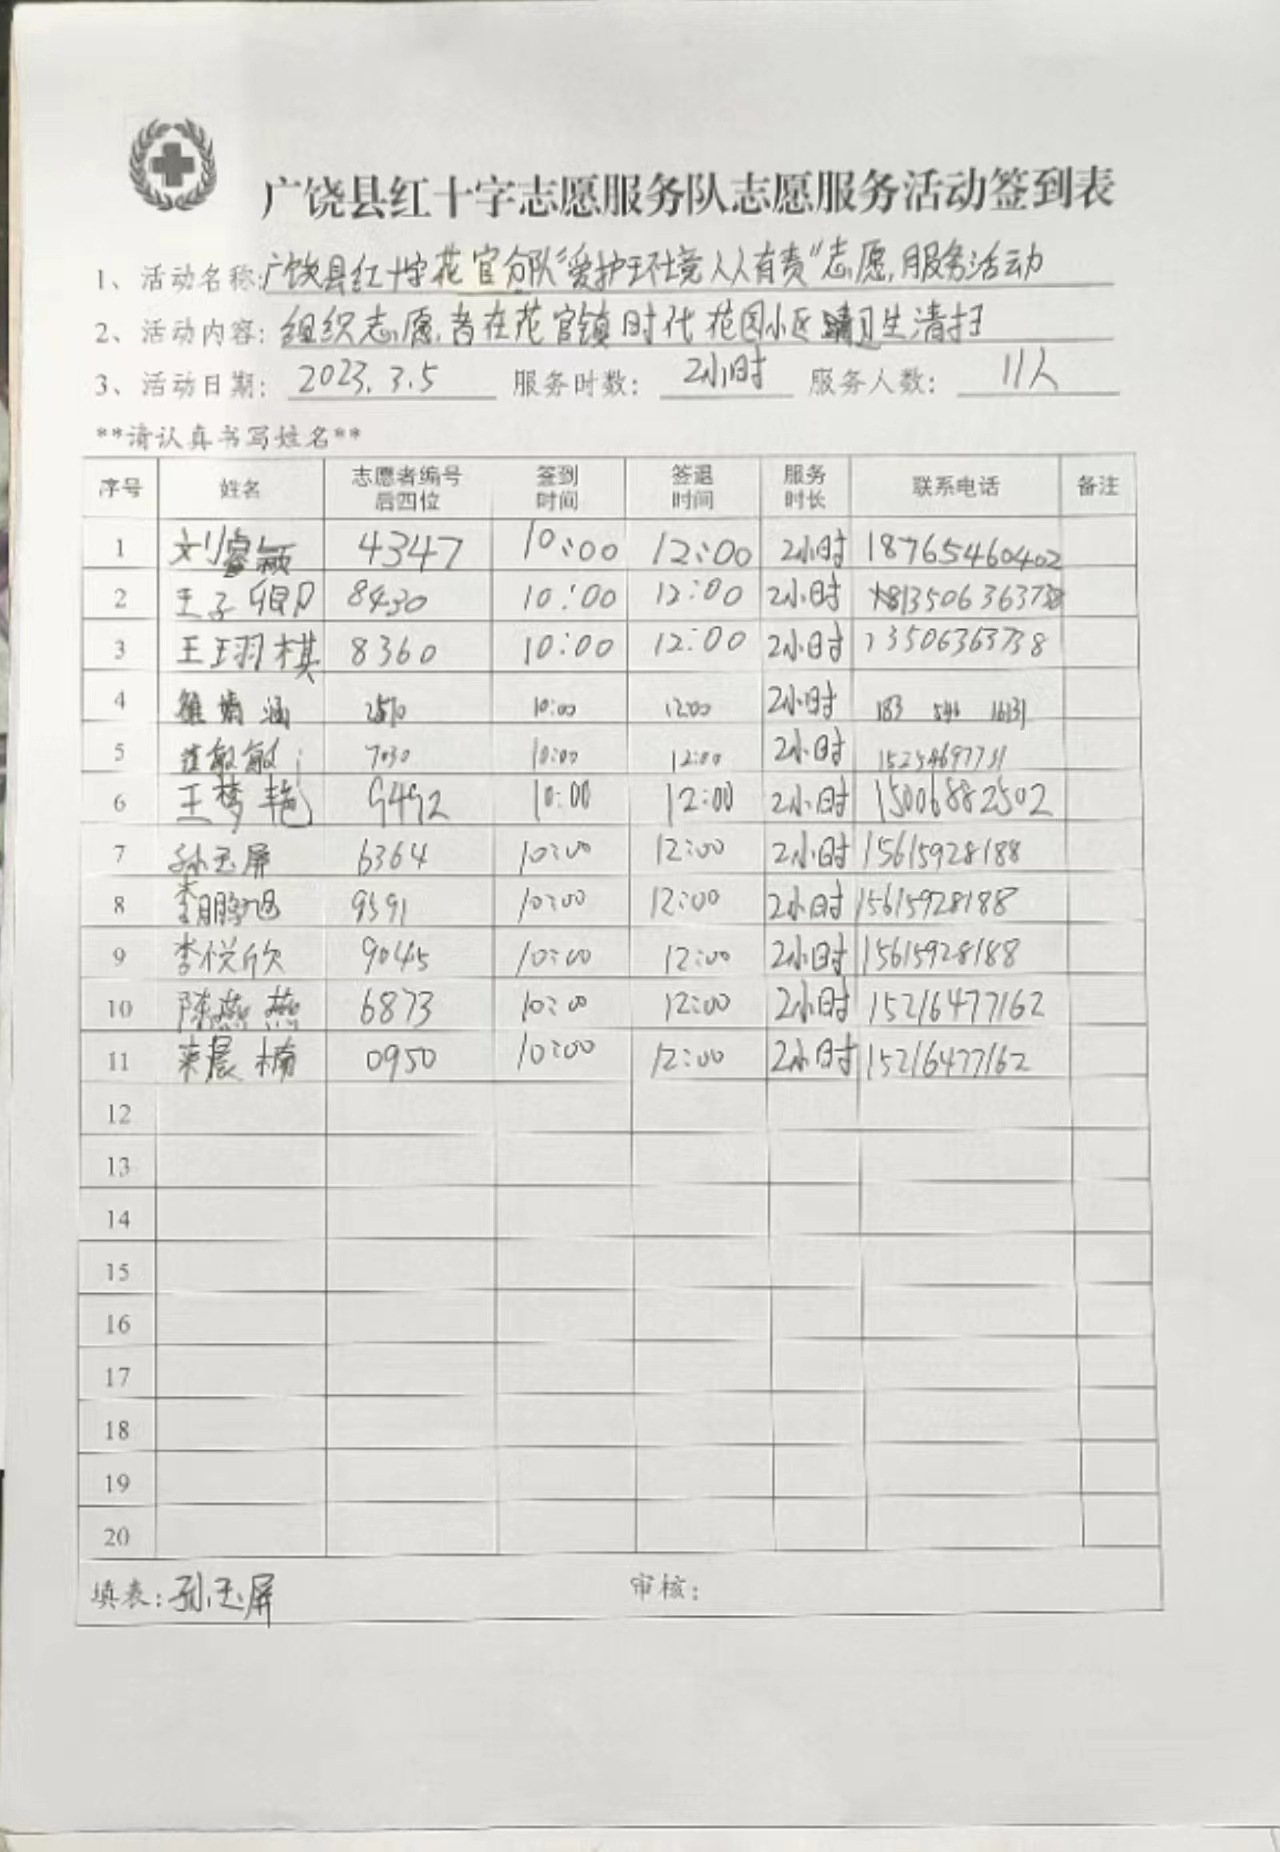 广饶县红十字志愿服务队志愿服务活动签到表
1、活动名称:广饶县红十字花官分队“爱护环境人人有责”志愿服务活动
2、活动内容:组织志愿者在花官镇时代花园小区卫生清扫
3、活动日期:2023.3.5 服务时数:2小时 服务人数:11人
**请认真书写姓名**
序号 姓名 志愿者编号后四位 签到时间 签退时间 服务时长 联系电话 备注
1 刘睿颖 4347 10:00 12:00 2小时 18765460402
2 王子 8430 10:00 12:00 2小时
3 王玥棋 8360 10:00 12:00 2小时 13506363738
4 涵 10:00 12:00 2小时 183 546 16131
5 敏敏 7030 10:00 12:00 2小时 15254697731
6 王梦艳 9492 10:00 12:00 2小时 15006882502
7 孙玉屏 6364 10:00 12:00 2小时 15615928188
8 李鹏旭 9591 10:00 12:00 2小时 15615928188
9 李悦欣 9045 10:00 12:00 2小时 15615928188
10 陈燕燕 6873 10:00 12:00 2小时 15216477162
11 来晨楠 0950 10:00 12:00 2小时 15216477162
12
13
14
15
16
17
18
19
20
填表:孙玉屏 审核: